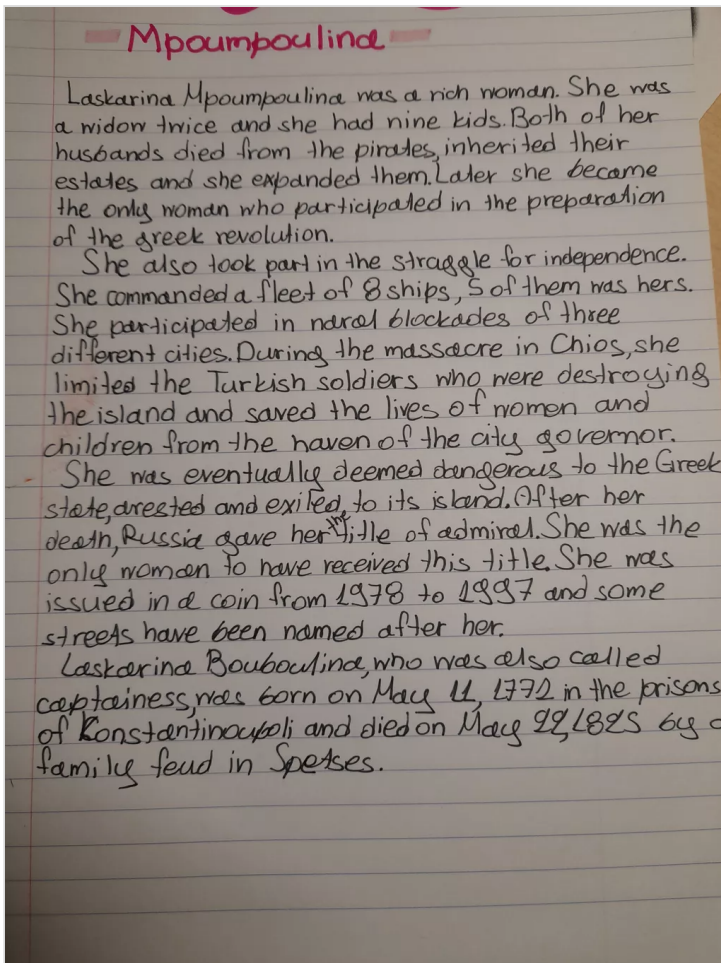 Mpoumpoulina
Laskarina Mpoumpoulina was a rich woman. She was
a widow twice and she had nine kids. Both of her
husbands died from the pirates, inherited their
estates and she expanded them. Later she became
the only woman who participated in the preparation
of the greek revolution.
She also took part in the straggle for independence.
She commanded a fleet of 8 ships, 5 of them was hers.
She participated in naval blockades of three
different cities. During the massacre in Chios, she
limited the Turkish soldiers who were destroying
the island and saved the lives of women and
children from the haven of the city governor.
She was eventually deemed dangerous to the Greek
state, arested and exiled, to its island. After her
death, Russia gave her the title of admiral. She was the
only woman to have received this title. She was
issued in a coin from 1978 to 1997 and some
streets have been named after her.
Laskarina Bouboulina, who was also called
captainess, was born on May 11, 1772 in the prisons
of Konstantinoupoli and died on May 22, 1825 by a
family feud in Spetses.